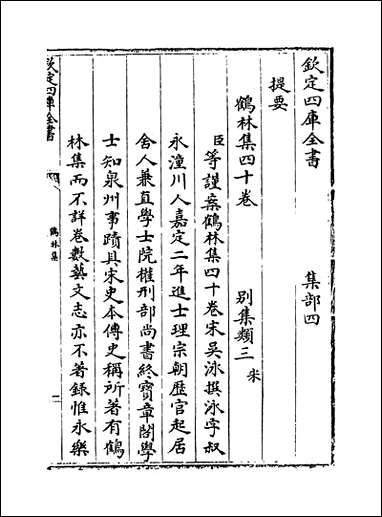 欽定四庫全書　集部四
提要
鶴林集四十卷　別集類三宋
臣等謹案鶴林集四十卷宋吳泳撰泳字叔
永潼川人嘉定二年進士理宗朝歴官起居
舍人兼直學士院權刑部尚書終寶章閣學
士知泉州事蹟具宋史本傳史稱所著有鶴
林集而不詳卷數藝文志亦不著録惟永樂
欽定四庫全書
鶴林集